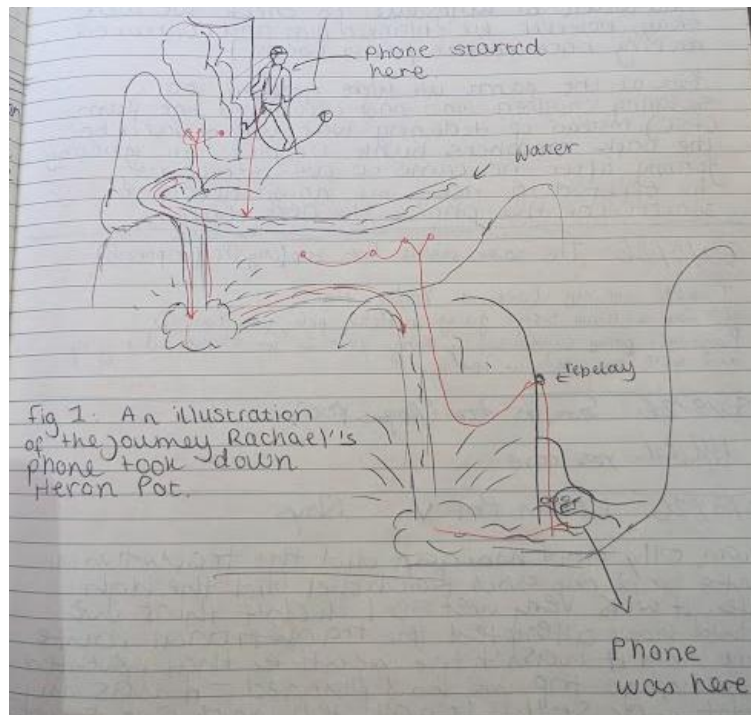 phone started
here
water
repelay
Fig 1: An illustration
of the journey Rachael''s
phone took down
Heron Pot.
Phone
was here